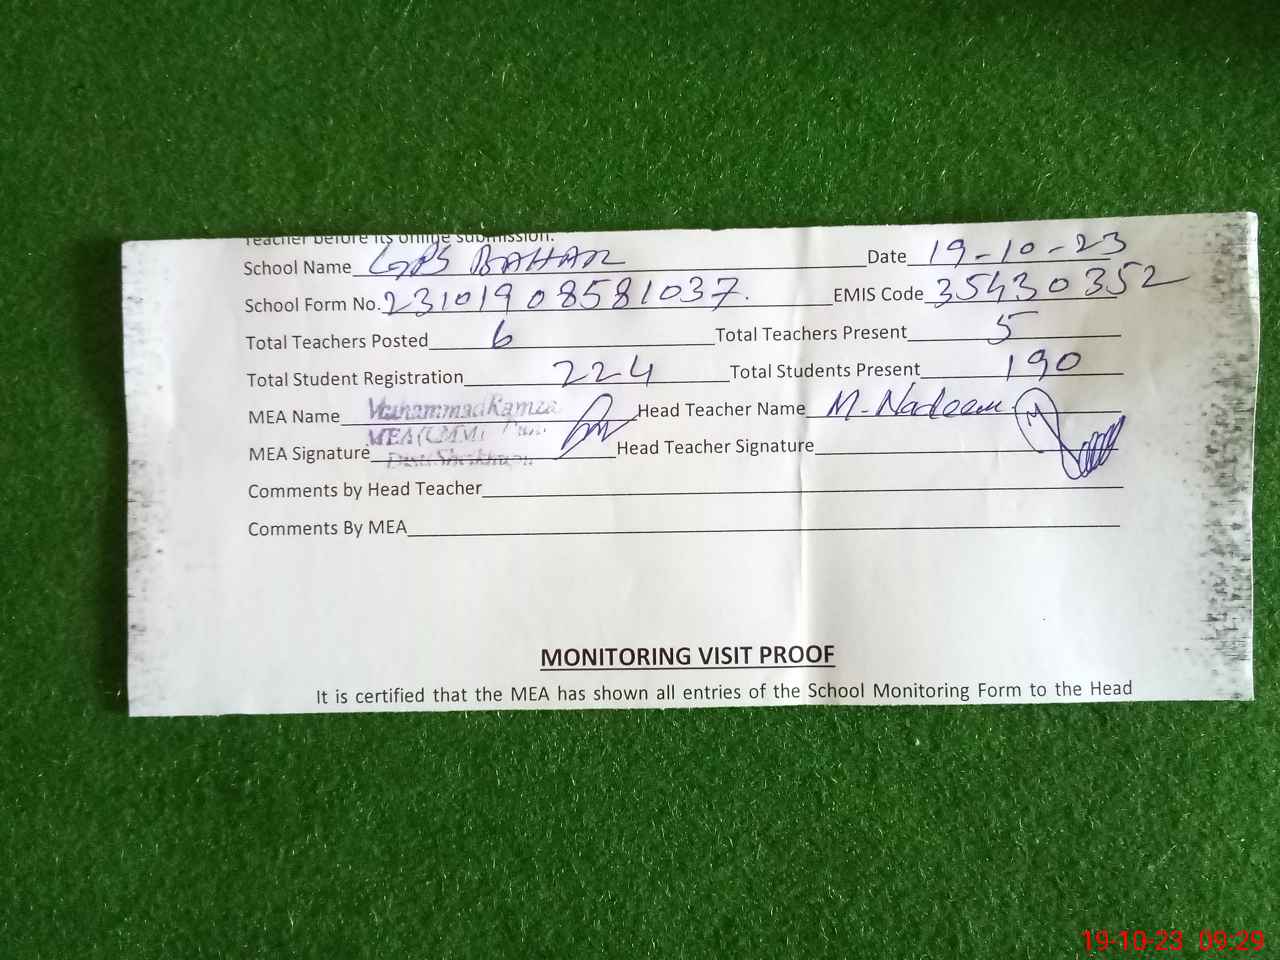 Teacher before its online submission.
School Name GPS BAHAR Date 19-10-23
School Form No. 23101908581037. EMIS Code 35430352
Total Teachers Posted 6 Total Teachers Present 5
Total Student Registration 224 Total Students Present 190
MEA Name Muhammad Head Teacher Name M. Nadeem
MEA Signature Head Teacher Signature
Comments by Head Teacher
Comments By MEA
MONITORING VISIT PROOF
It is certified that the MEA has shown all entries of the School Monitoring Form to the Head
19-10-23 09:29